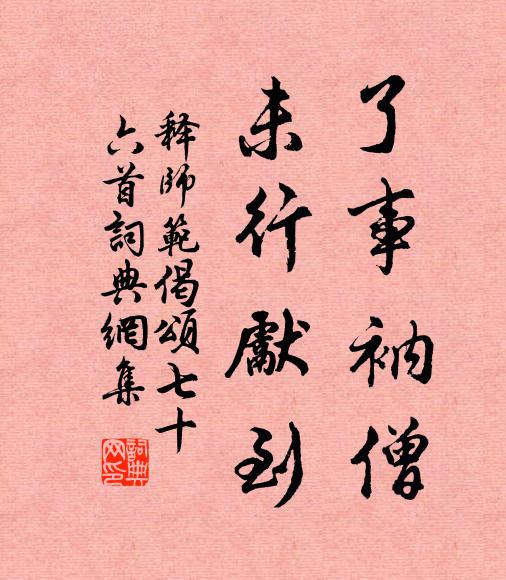 了事衲僧
未行獻到
释師範偈頌七十
六首詞典網集
詞典網印